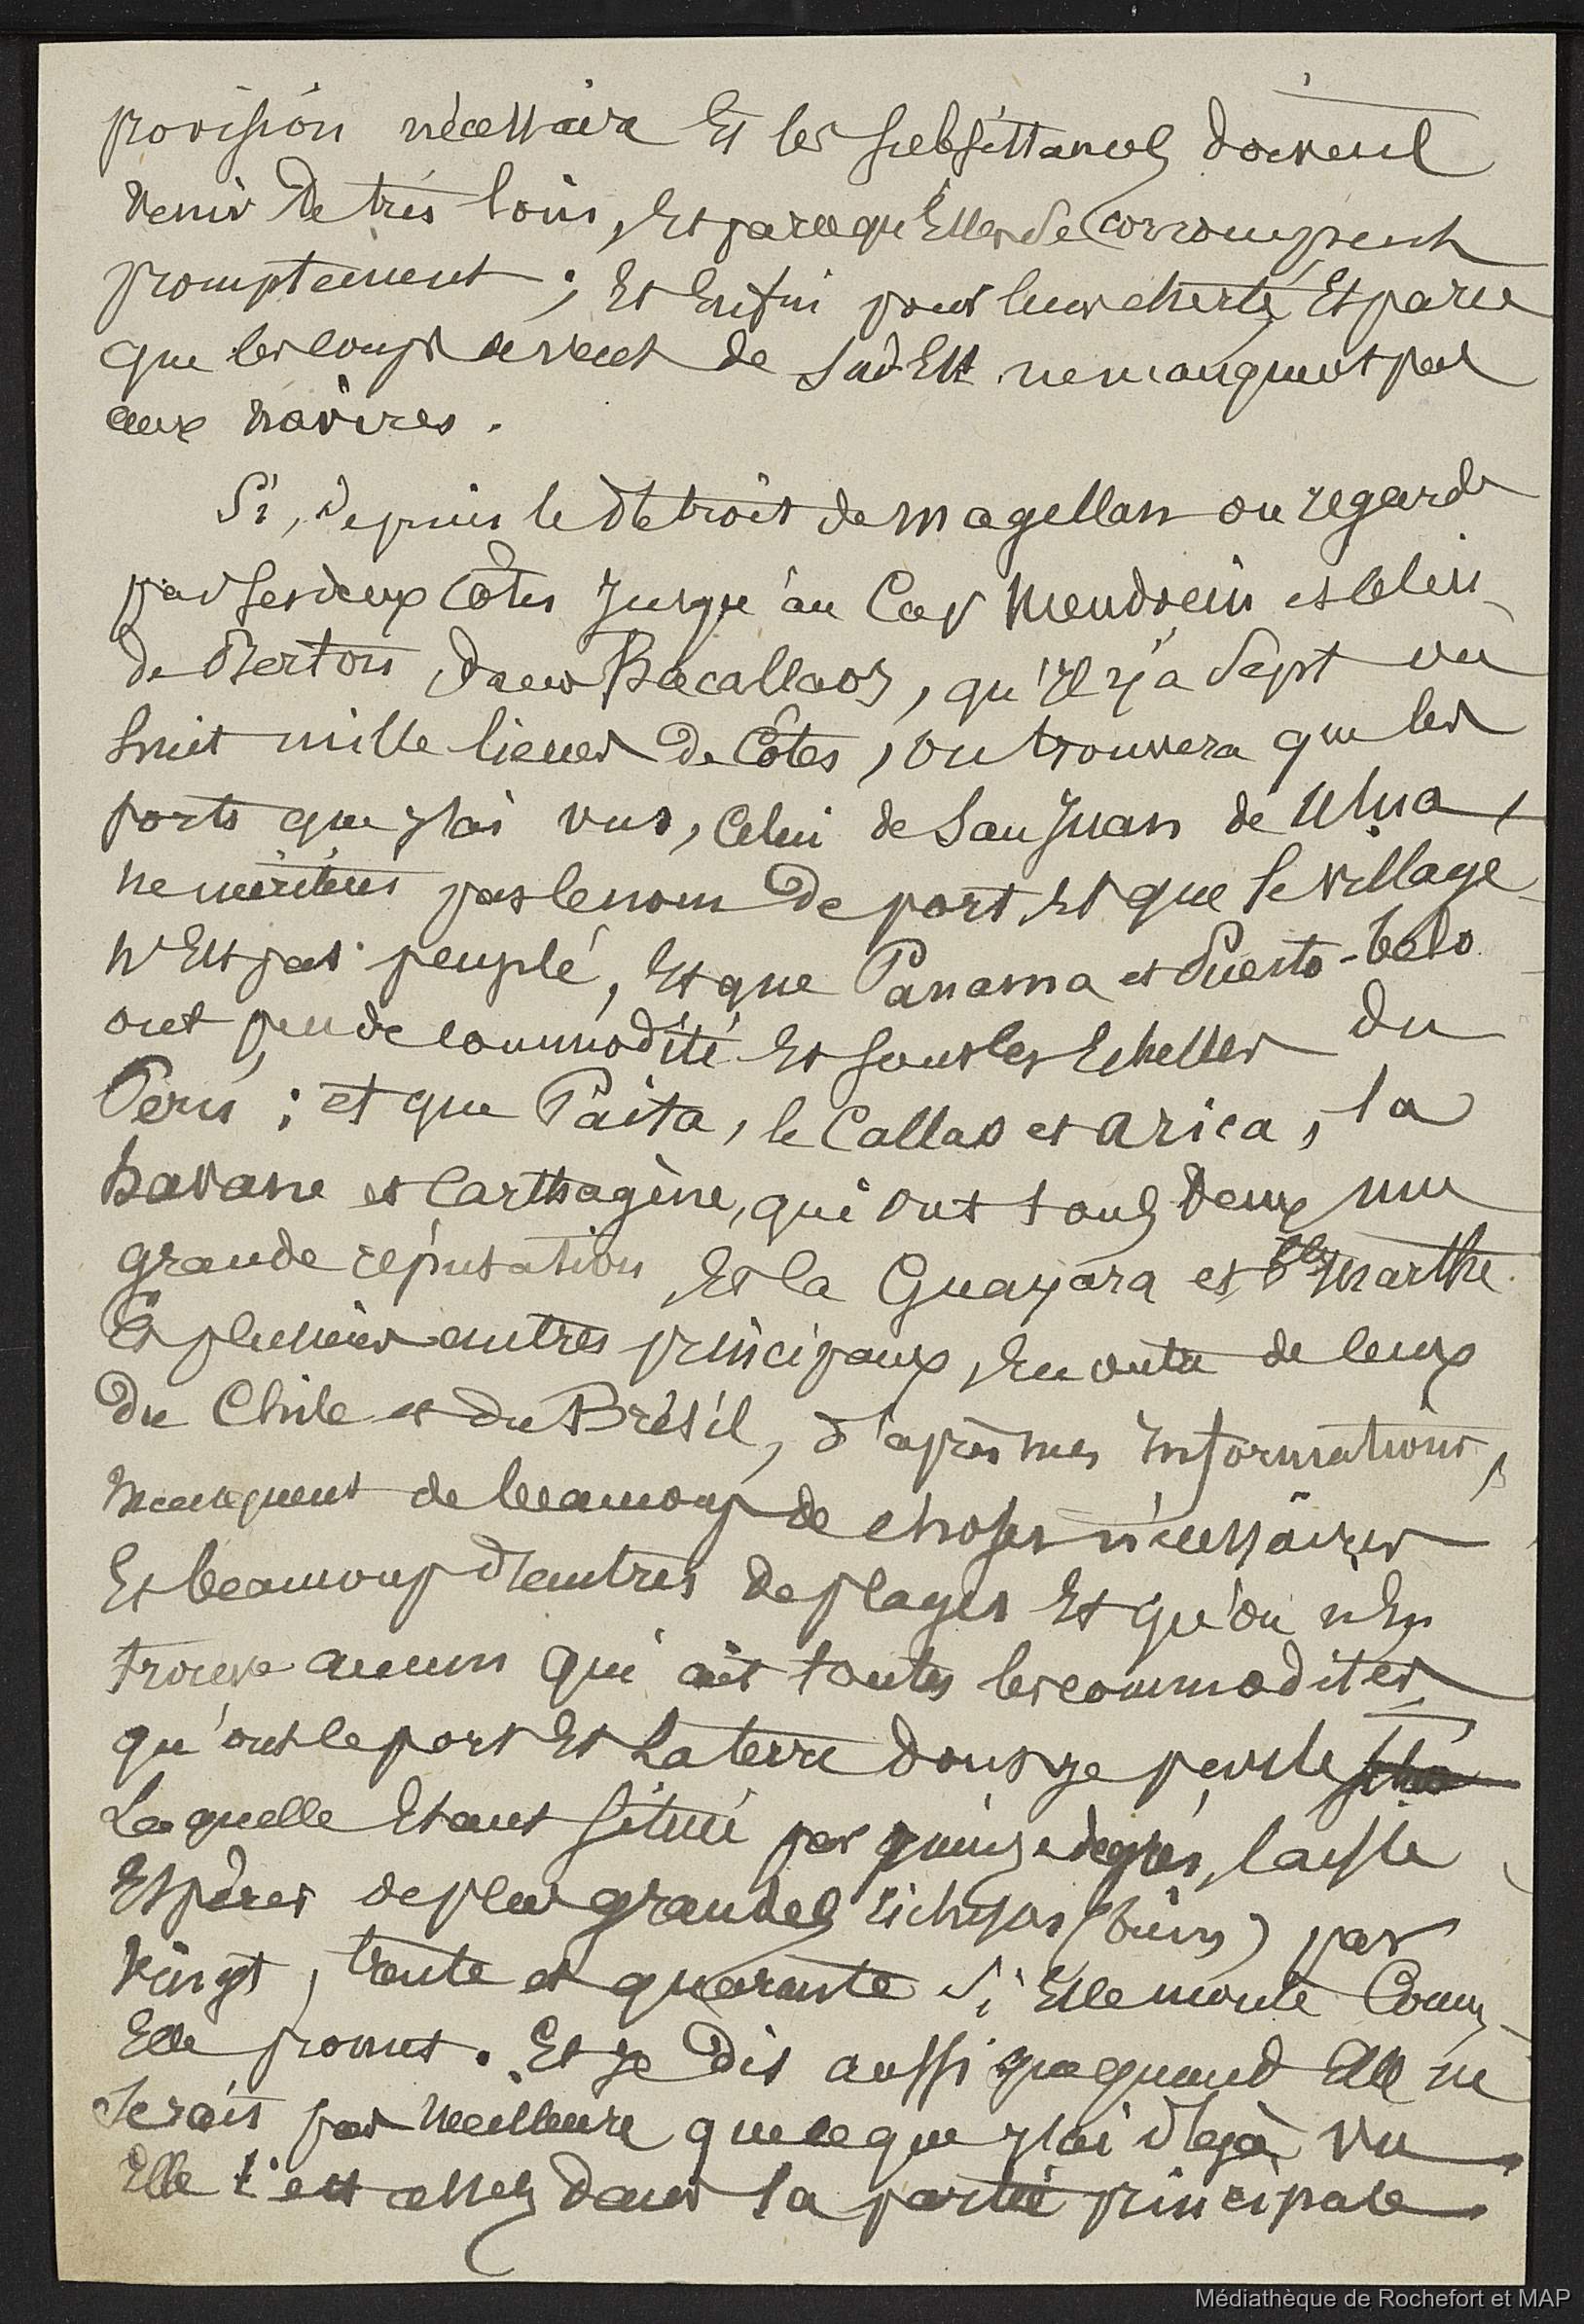 provision nécessaire Et les subsistances doivent
venir de très loin, Et parcequ'Elles se corrompent
promptement ; Et Enfin pour leur cherté, Et parce
que les coups de vent de Sud-Est ne manquent pas
aux navires.
Si, depuis le détroit de Magellan on regarde
par ses deux côtes jusqu'au Cap Mendocin et celui
de Breton, dans Bacallaos, qu'Il y a sept ou
huit mille lieues de Côtes, on trouvera que les
ports que j'ai vus, celui de San Juan de Ulua,
ne méritent pas le nom de port, Et que le village
n'Est pas peuplé, Et que Panama et Puerto-belo
ont peu de commodité Et sont les Echelles du
Pérú ; et que Paita, le Callao et Arica, la
havane et Carthagène, qui ont tous deux une
grande réputation, Et la Guayara et Ste Marthe
Et plusieurs autres principaux, En outre de ceux
du Chile et du Brésil, d'après mes Informations,
manquent de beaucoup de choses nécessaires
Et beaucoup d'autres de plages Et qu'on n'En
trouve aucun qui ait toutes les commodités
qu'ont le port Et la terre dont je parle
Laquelle Etant située par quinze degrés, laisse
Espérer de plus grandes richesses (biens) par
vingt, trente et quarante si Elle monte Comme
Elle promet. Et je dis aussi que quand Elle ne
serait pas meilleure que ce que j'ai déjà vu
Elle l'est assez dans la partie principale
Médiathèque de Rochefort et MAP